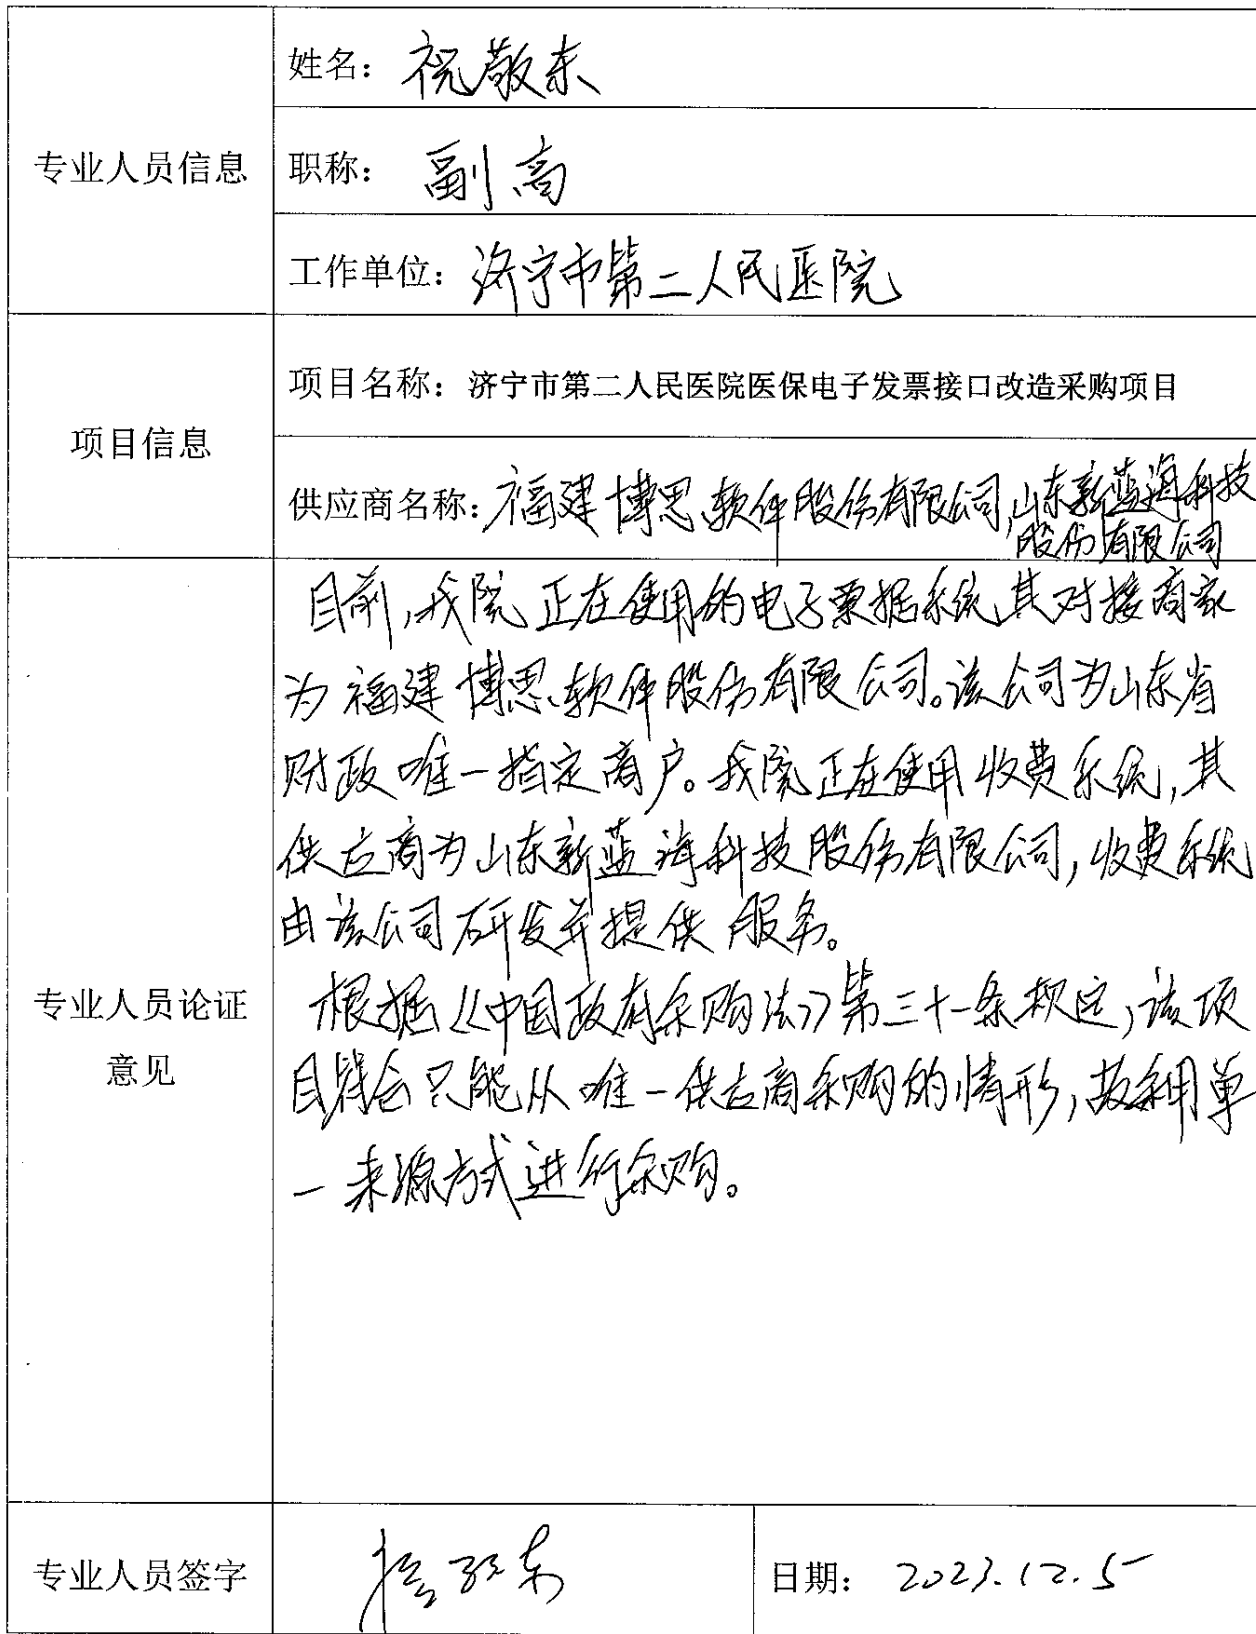 专业人员信息
姓名：祝敬东
职称：副高
工作单位：济宁市第二人民医院
项目信息
项目名称：济宁市第二人民医院医保电子发票接口改造采购项目
供应商名称：福建博思软件股份有限公司，山东新蓝海科技
股份有限公司
专业人员论证
意见
目前，我院正在使用的电子票据系统其对接商家
为福建博思软件股份有限公司。该公司为山东省
财政唯一指定商户。我院正在使用收费系统，其
供应商为山东新蓝海科技股份有限公司，收费系统
由该公司研发并提供服务。
根据《中国政府采购法》第三十一条规定，该项
目符合只能从唯一供应商采购的情形，故采用单
一来源方式进行采购。
专业人员签字
日期：2023.12.5